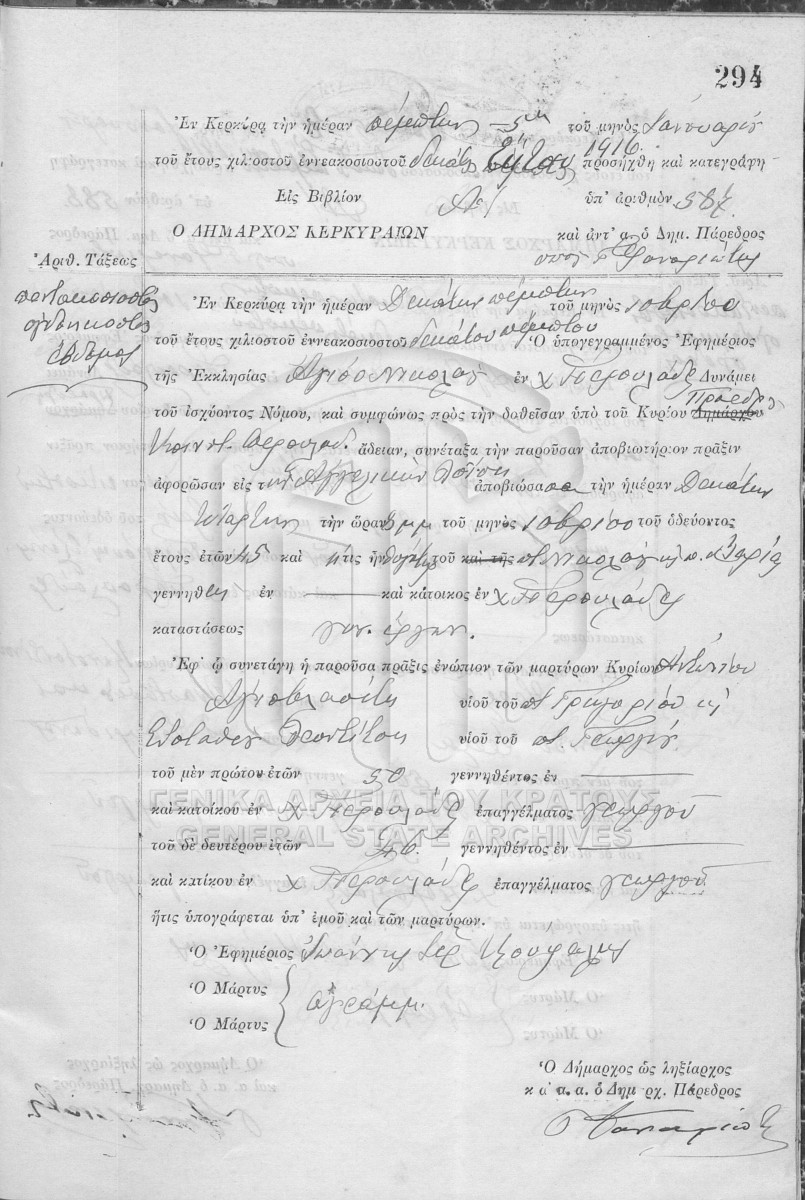 294
Ἐν Κερκύρᾳ τὴν ἡμέραν πέμπτην 5ην τοῦ μηνὸς Ἰανουαρίου
1916
τοῦ ἔτους χιλιοστοῦ ἐννεακοσιοστοῦ δεκάτου ἕκτου προσήχθη καὶ κατεγράφη
Εἰς Βιβλίον Α/ ὑπ' ἀριθμὸν 587
Ο ΔΗΜΑΡΧΟΣ ΚΕΡΚΥΡΑΙΩΝ καὶ ἀντ' αὐτοῦ ὁ Δημ. Πάρεδρος
Ἀριθ. Τάξεως
πεντακοσιοστὸς
ὀγδοηκοστὸς
ἕβδομος
Ἐν Κερκύρᾳ τὴν ἡμέραν Δεκάτην πέμπτην τοῦ μηνὸς 10βρίου
τοῦ ἔτους χιλιοστοῦ ἐννεακοσιοστοῦ δεκάτου πέμπτου Ὁ ὑπογεγραμμένος Ἐφημέριος
τῆς Ἐκκλησίας Ἁγίου Νικολάου ἐν χ Περουλάδες Δυνάμει
τοῦ ἰσχύοντος Νόμου, καὶ συμφώνως πρὸς τὴν δοθεῖσαν ὑπὸ τοῦ Κυρίου Δημάρχου Προέδρου
Κοιν. Περουλάδ. ἄδειαν, συνέταξα τὴν παροῦσαν ἀποβιωτήριον πρᾶξιν
ἀφορῶσαν εἰς τὴν Ἀγγελικὴν ἀποβιώσασα τὴν ἡμέραν Δεκάτην
τετάρτην τὴν ὥραν μμ τοῦ μηνὸς 10βρίου τοῦ ὁδεύοντος
ἔτους ἐτῶν 45 καὶ ἥτις ἦν θυγάτηρ τοῦ καὶ τῆς π. Νικολάου
γεννηθεν ἐν καὶ κάτοικος ἐν χ Περουλάδες
καταστάσεως
Ἐφ' ᾧ συνετάγη ἡ παροῦσα πρᾶξις ἐνώπιον τῶν μαρτύρων Κυρίων Ἀντωνίου
Ἁγιοβλασίτη υἱοῦ τοῦ π. Γρηγορίου
Εὐσταθίου Λεοντίτση υἱοῦ τοῦ π. Γεωργίου
τοῦ μὲν πρώτου ἐτῶν 50 γεννηθέντος ἐν
καὶ κατοίκου ἐν χ Περουλάδες ἐπαγγέλματος γεωργοῦ
ΓΕΝΙΚΑ ΑΡΧΕΙΑ ΤΟΥ ΚΡΑΤΟΥΣ
GENERAL STATE ARCHIVES
τοῦ δὲ δευτέρου ἐτῶν γεννηθέντος ἐν
καὶ κατίκου ἐν χ Περουλάδες ἐπαγγέλματος γεωργοῦ
ἥτις ὑπογράφεται ὑπ' ἐμοῦ καὶ τῶν μαρτύρων.
Ὁ Ἐφημέριος Ἰωάννης ἱερ.
Ὁ Μάρτυς
Ὁ Μάρτυς ἀγράμμ.
Ὁ Δήμαρχος ὡς ληξίαρχος
κ α. α. ὁ Δημ ρχ. Πάρεδρος